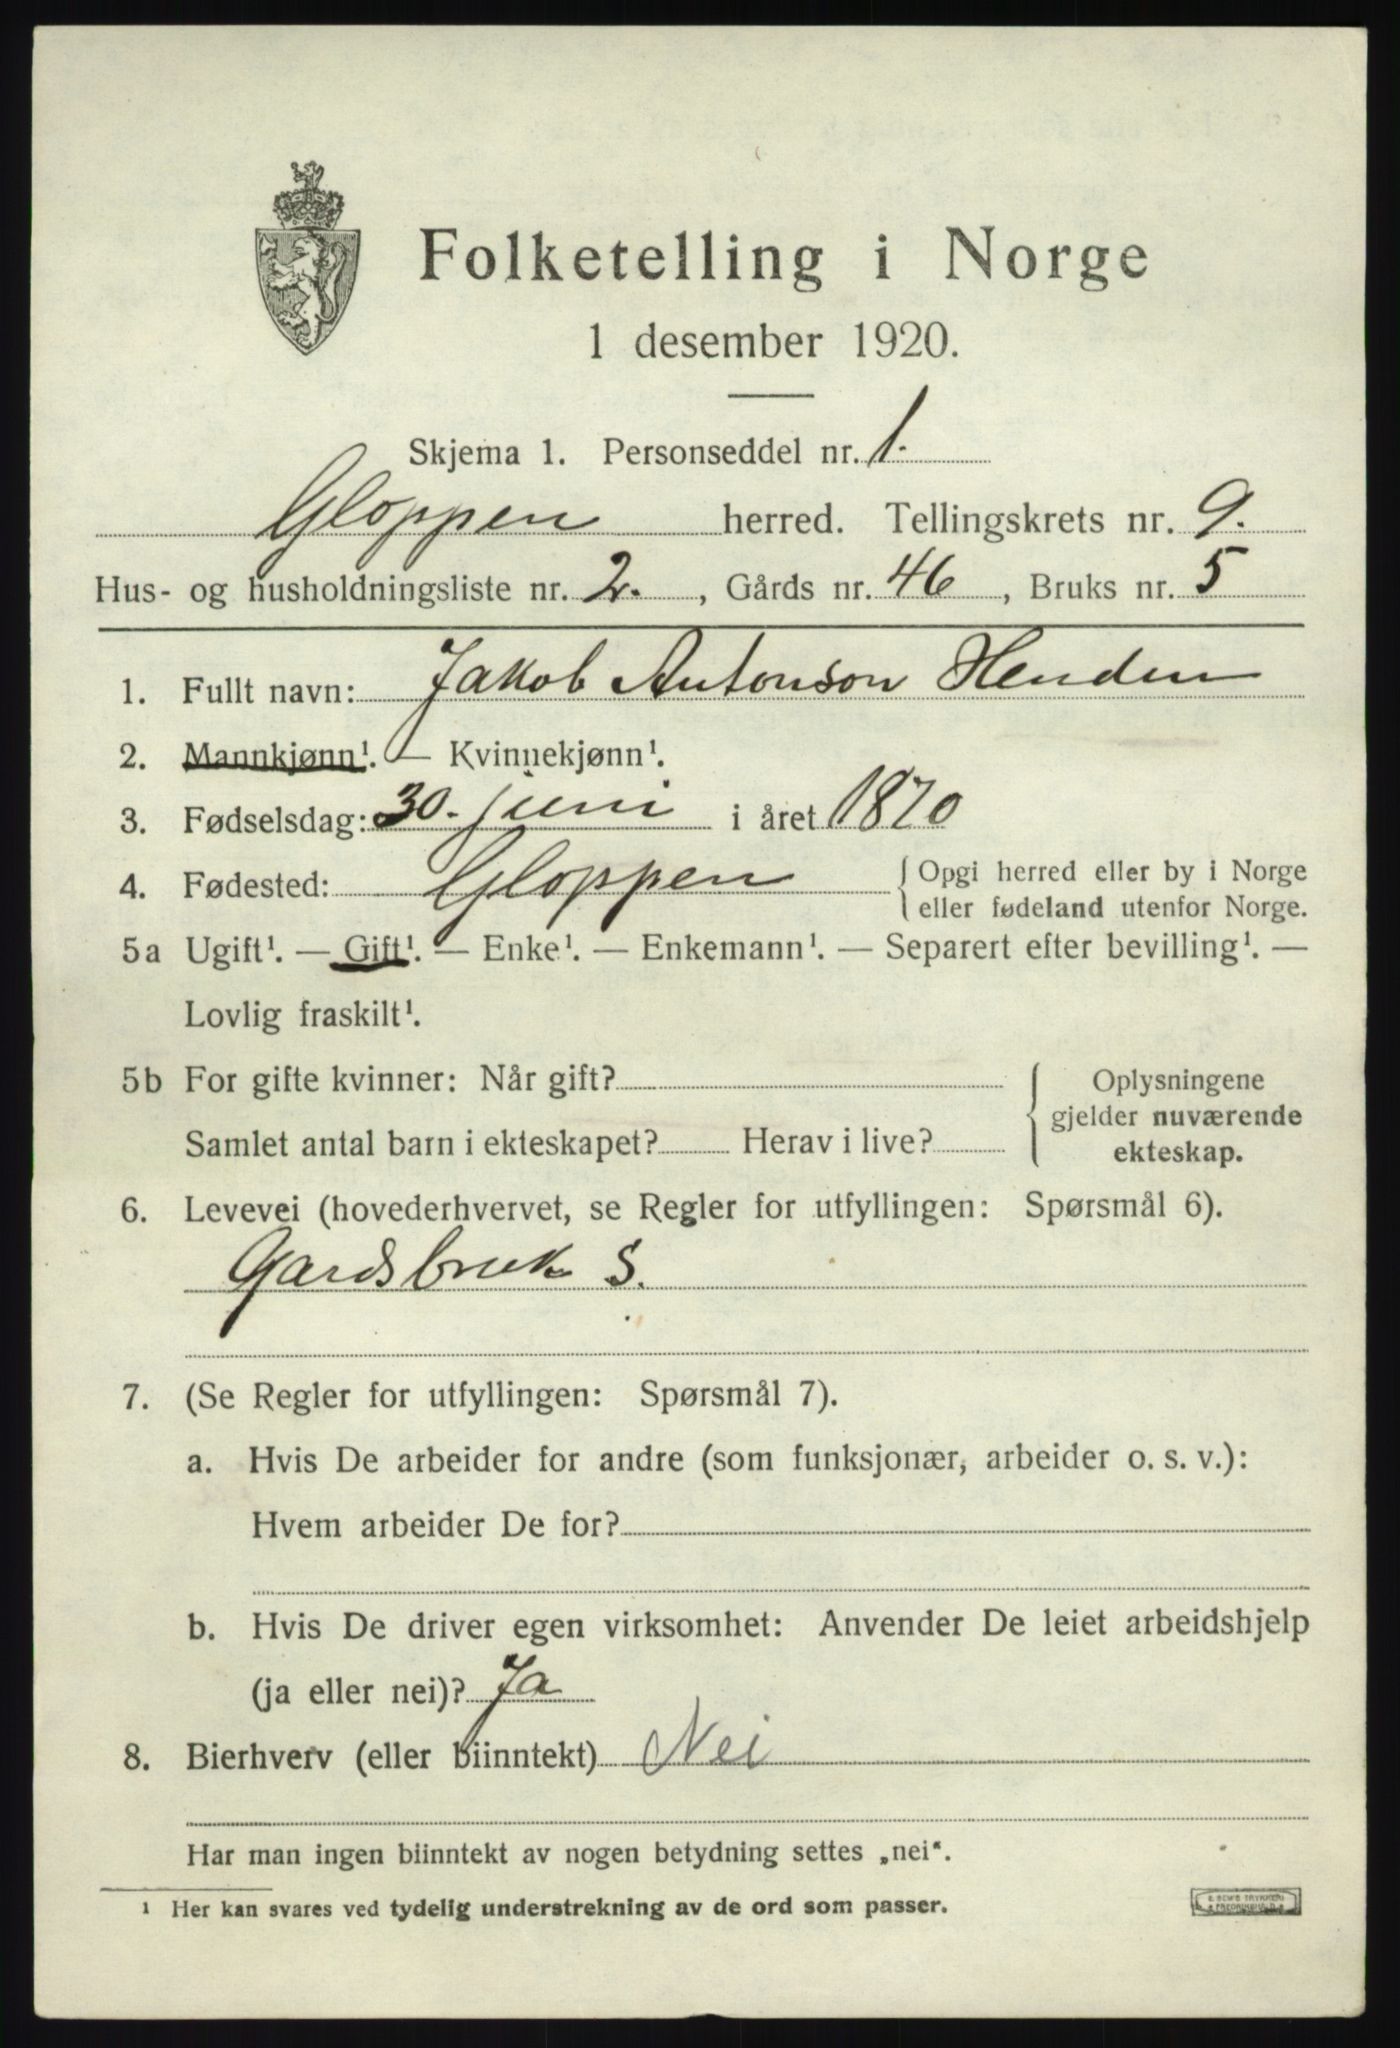 Folketelling i Norge
1 desember 1920.
Skjema 1. Personseddel nr. 1.
Gloppen herred. Tellingskrets nr. 9.
Hus- og husholdningsliste nr. 2. , Gårds nr. 46 , Bruks nr. 5
1. Fullt navn: Jakob Antonson Henden
2. Mannkjønn¹. — Kvinnekjønn¹.
3. Fødselsdag: 30. juni i året 1870
4. Fødested: Gloppen { Opgi herred eller by i Norge
eller fødeland utenfor Norge.
5a Ugift¹. — Gift¹. — Enke¹. — Enkemann¹. — Separert efter bevilling¹. —
Lovlig fraskilt¹.
5b For gifte kvinner: Når gift? { Oplysningene
gjelder nuværende
Samlet antal barn i ekteskapet? Herav i live?
ekteskap.
6. Levevei (hovederhvervet, se Regler for utfyllingen: Spørsmål 6).
Gardsbruk S.
7. (Se Regler for utfyllingen: Spørsmål 7).
a. Hvis De arbeider for andre (som funksjonær, arbeider o. s. v.):
Hvem arbeider De for?
b. Hvis De driver egen virksomhet: Anvender De leiet arbeidshjelp
(ja eller nei)? Ja
8. Bierhverv (eller biinntekt) Nei
Har man ingen biinntekt av nogen betydning settes „nei“.
¹ Her kan svares ved tydelig understrekning av de ord som passer.